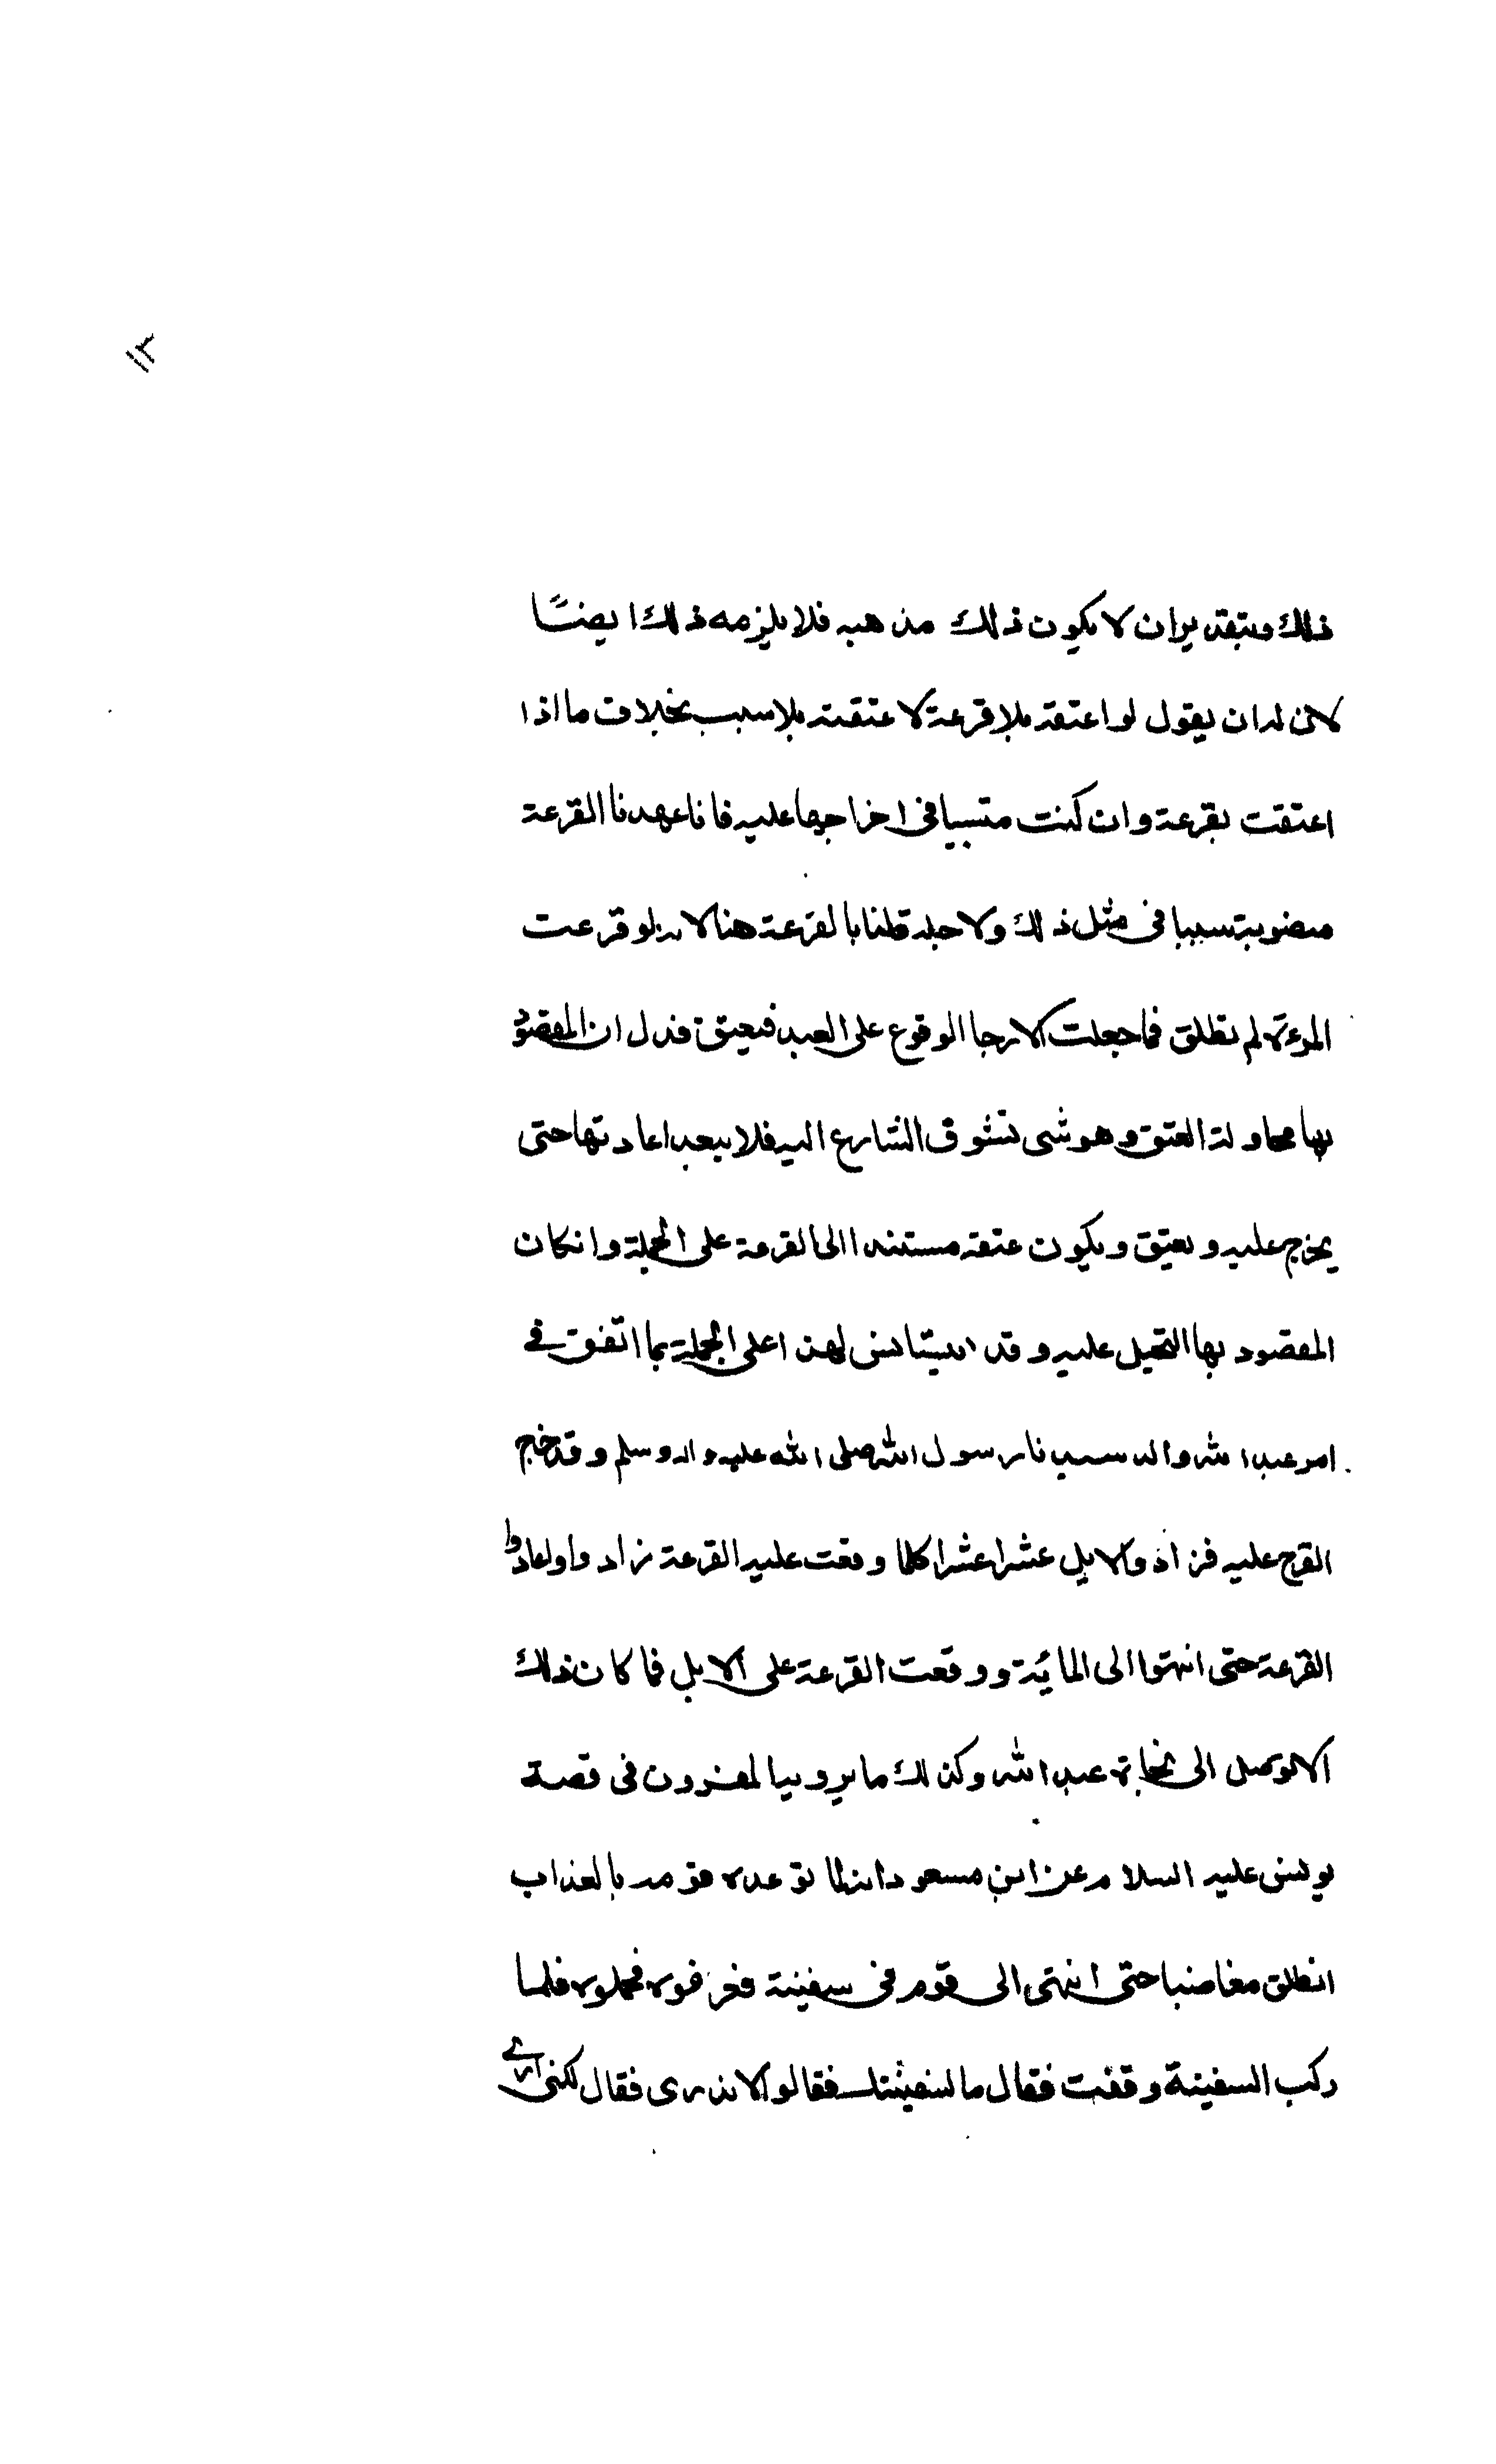 ١٢
ذلك وبتقدير ان لا يكون ذلك مذهبه فلا يلزمه ذلك ايضًا
لان له ان يقول لو اعتقه بلا قرعة لا عتقته بلا سبب بخلاف ما اذا
اعتقت بقرعة وان كنت متسببا في اخراجها عليه فانا عهدنا القرعة
منصوبة سببا في مثل ذلك ولاجله قلنا بالقرعة هنا لانه لو قرعت
المرءة لم تطلق فما جعلت الا رجا الوقوع على العبد فيعتق فدل ان المقصود
بها محاولة العتق وهو شى تشوق الشارع اليه فلا يبعد اعادتها حتى
يخرج عليه ويعتق ويكون عتقه مستندا الى القرعة على الجملة وانكان
المقصود بها التحيل عليه وقد يستانس لهذا على الجملة بما اتفق في
امر عبد الله والد سيدنا رسول الله صلى الله عليه واله وسلم وقد خرج
القرع عليه فزادوا الابل عشرا عشرا كلما وقعت عليه القرعة زادوا واعادوا
القرعة حتى انتهوا الى المائة ووقعت القرعة على الابل فما كان ذلك
الا توصل الى نجاة عبد الله وكذلك ما يرويه المفسرون في قصة
يونس عليه السلام عن ابن مسعود انه لما توعده قومه بالعذاب
انطلق مغاضبا حتى انتهى الى قوم في سفينة فعرفوه فحملوه فلما
ركب السفينة وقفت فقال ما لسفينتك فقالوا لا ندرى فقال لكنى ارى